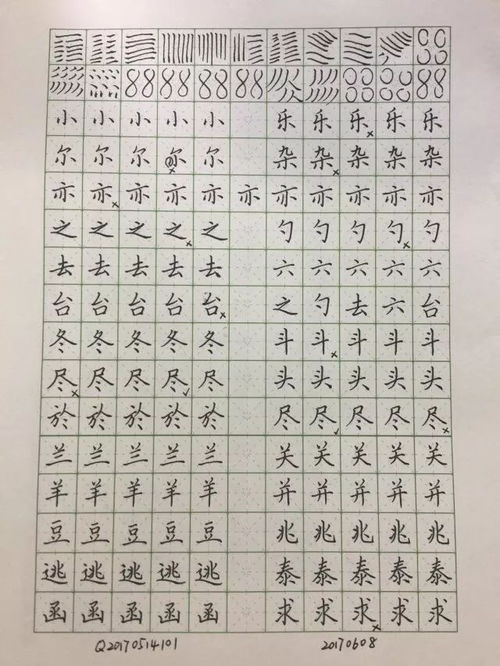 8 8 8 8 8 8 8 8 8 8 8 8
小 小 小 小 小 乐 乐 乐 乐 乐
尔 尔 尔 尔 尔 杂 杂 杂 杂 杂
亦 亦 亦 亦 亦 亦 亦 亦 亦 亦 亦
之 之 之 之 之 勺 勺 勺 勺 勺
去 去 去 去 去 六 六 六 六 六
台 台 台 台 台 之 勺 去 六 台
冬 冬 冬 冬 冬 斗 斗 斗 斗 斗
尽 尽 尽 尽 尽 头 头 头 头 头
於 於 於 於 於 尽 尽 尽 尽 尽
兰 兰 兰 兰 兰 关 关 关 关 关
羊 羊 羊 羊 羊 并 并 并 并 并
豆 豆 豆 豆 豆 兆 兆 兆 兆 兆
逃 逃 逃 逃 逃 泰 泰 泰 泰 泰
函 函 函 函 函 求 求 求 求 求
Q20170514101 20170608